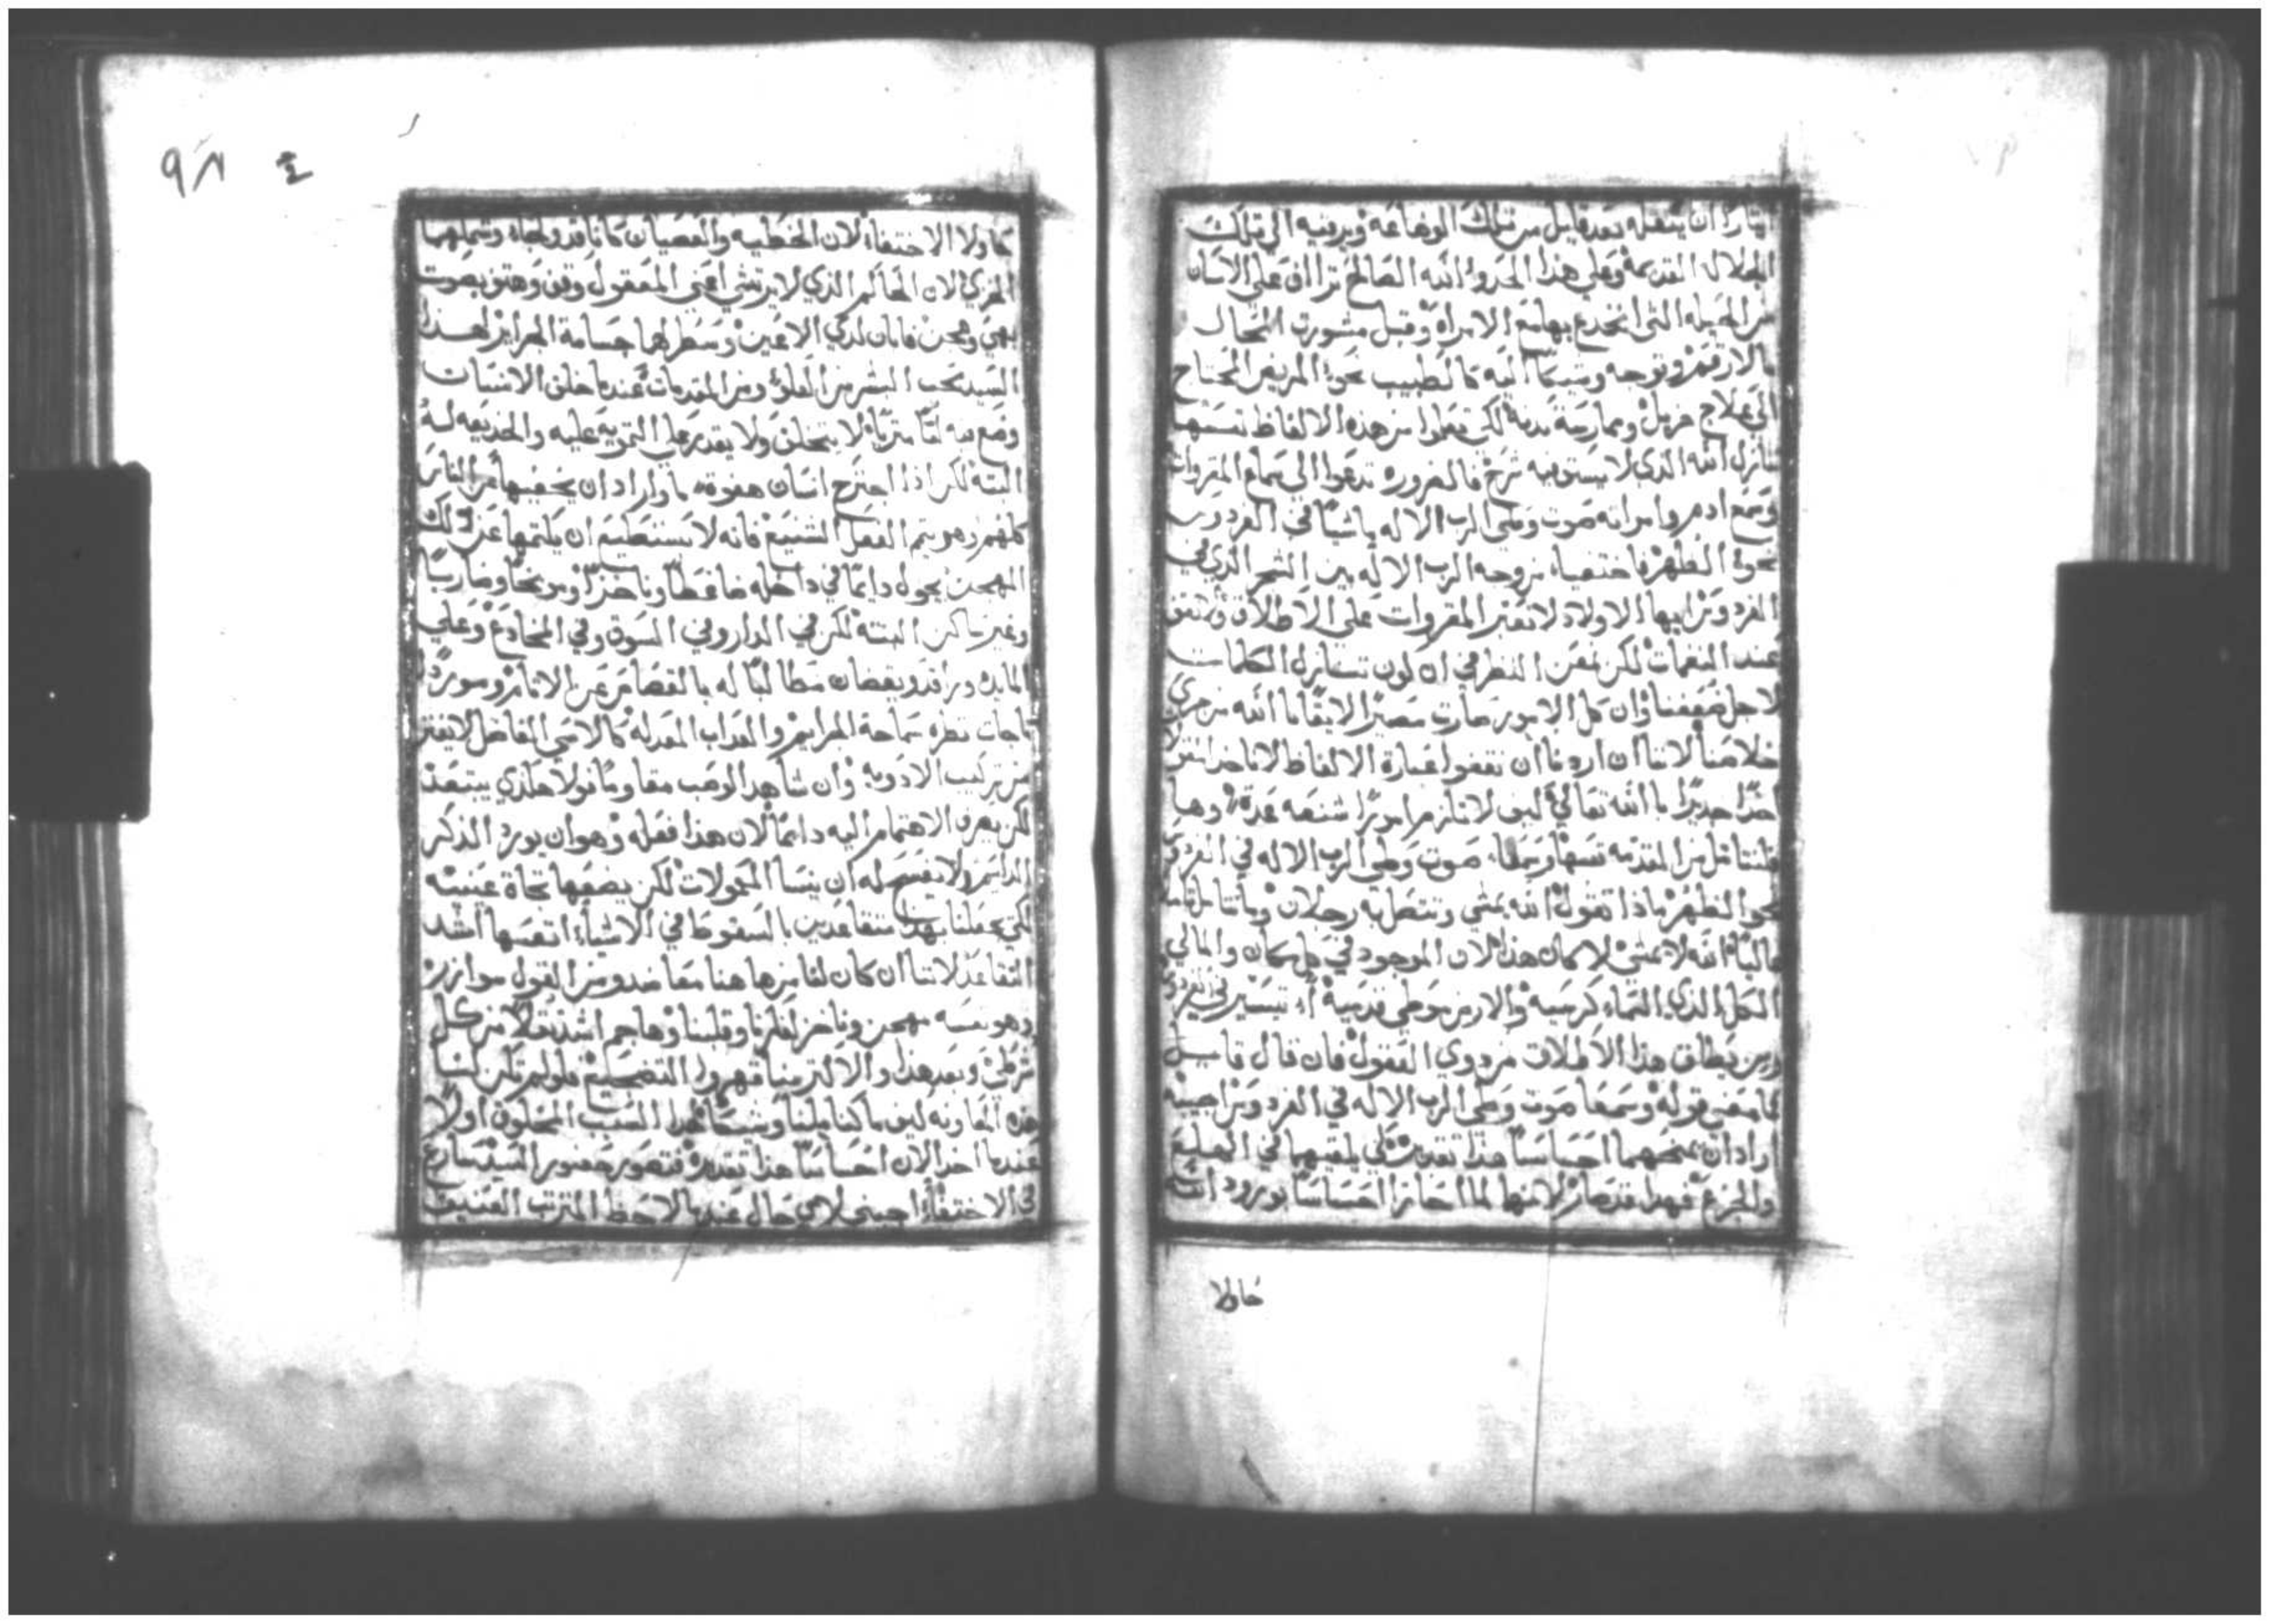 ايثارًا ان ينقله بعد قليل من تلك الوضاعه ويرقيه الي تلك
الجلاله القديمه وعلي هذا الحدو الله الصالح تراأف علي الانسان
من الحيله التي انخدع بها مع الامراه وقبل مشورت المحال
بالارقم وتوجه اليه كالطبيب نحو المريض المحتاج
الي علاج جزيل وممارسة لكي تعلموا من هذه الالفاظ نفسها
تنازل الله الذي لا يستوفيه شرح فالضروره تدعوا الي سماع المقروات
وسمع ادم وامراته صوت وطي الرب الاله ماشيًا في الفردوس
نحو الظهر فاختفيا من وجه الرب الاله بين الشجر الذي في
الفردوس ايها الاولاد لا نعتبر المقروات علي الاطلاق ولا نقف
عند النغمات لكن نمعن النظر في ان لون تنازل الكلمات
لاجل ضعفنا وان كل الامور صارت الله من جري
خلاصنا لاننا ان اردنا ان نقفوا عبارة الالفاظ لا ناخدها
اخدًا جديرًا بالله تعالي ليف لا نلزم امورًا شنعه عدة وها
فلنتامل من المقدمه نفسها وسمعا صوت وطي الرب الاله في الفردوس
نحو الظهر ماذا تقول الله يمشي وتتصل به رجلان
الله لا يمشي لا كان هذا لان الموجود في كل مكان والمالي
الكل الذي السماء كرسيه والارض موطي قدميه اد تيسير في الفردوس
ومن يطلق هذا الاطلاق من دوي العقول فان قال قايل
فما معني قوله وسمعا صوت وطي الرب الاله في الفردوس اجيبه
اراد ان يمنحهما احساسًا هذا تقديره لكي يلقيهما في الهلع
والجزع فهذا قد صار لانهما لما احازا احساسًا بورود الله
حاولا
حاولا الاختفاء لان الخطيه والعصيان كانا قد ولجاه وشملهما
الخزي لان الحاكم الذي لا يرتشي اعني المعقول وقف وهتف بصوت
بهي وهجن فابان لدي الاعين وسطر لهما جسامة الجرايم لهذا
السيد يحب البشر من العلو ومن المقدمات عندما خلق الانسان
وضع فيه لا يتخلف ولا يقدر علي التمويه عليه والخديعه له
البته لكن اذا اجترح انسان هفوة ما واراد ان يخفيها عن الناس
كلهم وهو يتم الفعل الشنيع فانه لا يستطيع ان يكتمها عن ذلك
المهجن يجول دايمًا في داخله ضاغطًا وناخزًا وموبخًا وضاربًا
وغير ساكن البته لكن في الدار وفي السوق وفي المخادع وعلي
المايده وراقد ويقضان مطالبًا له بالقصاص عن الاثام وموردًا
تجاه نظره سماجة الجرايم والعداب المعد له كالاسي الفاضل لا يفتر
من تركيب الادويه وان شاهد الوصب مقاومًا
لكن يصرف الاهتمام اليه دايمًا لان هذا فعله وهو ان يورد الذكر
الدايم ولا يفسح له ان ينسا المحمولات لكن يضعها تجاة عينيه
لكي يجعلنا بهذا متقاعدين بالسقوط في الاشياء انفسها اشد
التقاعد لاننا ان كان لنا من هاهنا معاضد ومن القول موازر
وهو نفسه مهجن وناخز افكارنا وقلبنا وهاجم اشد من كل
شرطي وبعد هذا والاكثر منا قهروا فلو لم تكن لنا
هذه المعاونه ليف ما كنا بلينا ولهدا السبب المخلوق اولًا
عندما اخد الان احساسًا هذا تقديره فتصور حضور السيد سارع
في الاختفا اجبني لاي حال عندما لاحظ المترتب العنيف